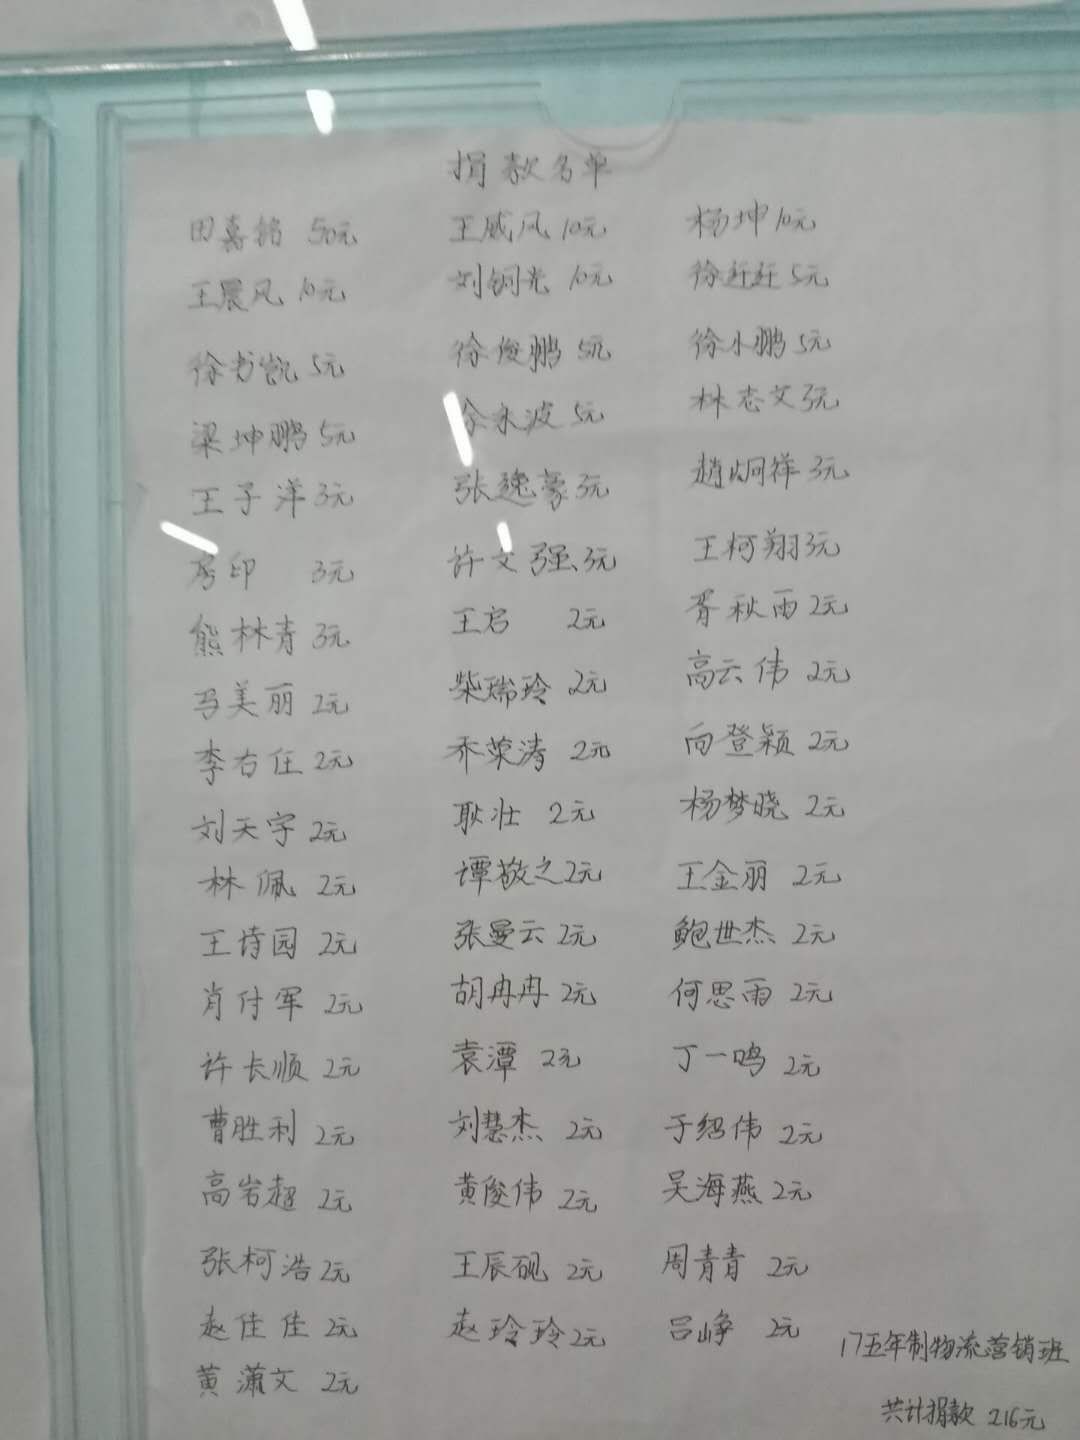 捐款名单
田嘉铭 50元 王威风 10元 杨坤 10元
王晨风 10元 刘钶光 10元 徐赶赶 5元
徐书凯 5元 徐俊鹏 5元 徐小鹏 5元
梁坤鹏 5元 永波 5元 林志文 3元
王子洋 3元 张逸豪 3元 赵炯祥 3元
房印 3元 许文强 3元 王柯翔 3元
熊林青 3元 王启 2元 胥秋雨 2元
马美丽 2元 柴瑞玲 2元 高云伟 2元
李右任 2元 乔荣涛 2元 向登颖 2元
刘天宇 2元 耿壮 2元 杨梦晓 2元
林佩 2元 谭敬之 2元 王金丽 2元
王诗园 2元 张曼云 2元 鲍世杰 2元
肖付军 2元 胡冉冉 2元 何思雨 2元
许长顺 2元 袁潭 2元 丁一鸣 2元
曹胜利 2元 刘慧杰 2元 于绍伟 2元
高岩超 2元 黄俊伟 2元 吴海燕 2元
张柯浩 2元 王辰砚 2元 周青青 2元
赵佳佳 2元 赵玲玲 2元 吕峥 2元
黄潇文 2元
17五年制物流营销班
共计捐款 216元